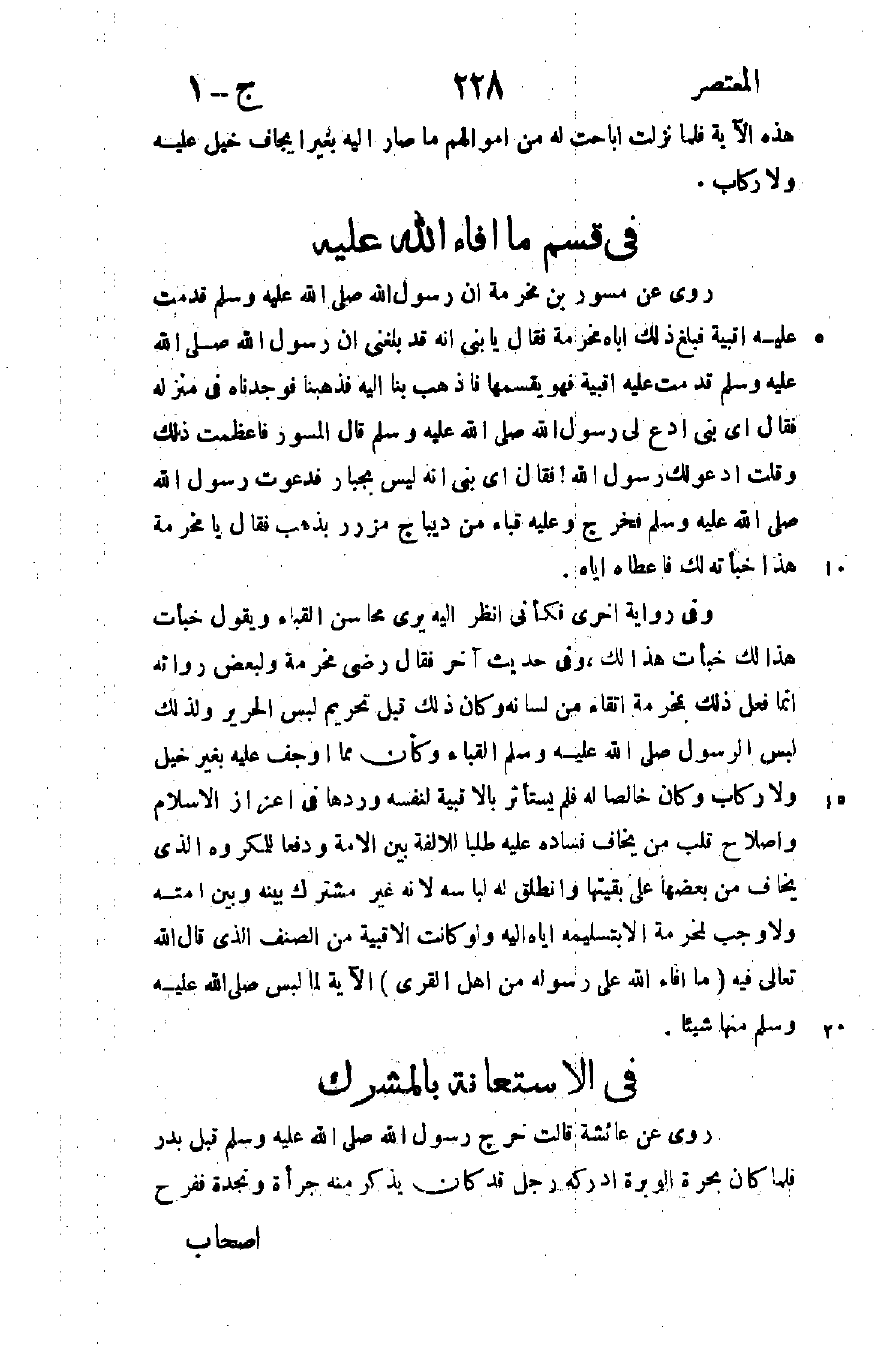 المعتصر ٢٢٨ ج – ١
هذه الآية فلما نزلت اباحت له من اموالهم ما صار اليه بغير ايجاف خيل عليه
ولا ركاب .
فى قسم ما افاء الله عليه
روى عن مسور بن مخرمة ان رسول الله صلى الله عليه وسلم قدمت
عليه اقبية فبلغ ذلك اباه مخرمة فقال يا بنى انه قد بلغنى ان رسول الله صلى الله ٥
عليه وسلم قدمت عليه اقبية فهو يقسمها فاذهب بنا اليه فذهبنا فوجدناه فى منزله
فقال اى بنى ادع لى رسول الله صلى الله عليه وسلم قال المسور فاعظمت ذلك
وقلت ادعو لك رسول الله ! فقال اى بنى انه ليس بجبار فدعوت رسول الله
صلى الله عليه وسلم فخرج وعليه قباء من ديباج مزرر بذهب فقال يا مخرمة
هذا خبأته لك فاعطاه اياه . ١٠
وفى رواية اخرى فكأنى انظر اليه يرى محاسن القباء ويقول خبأت
هذا لك خبأت هذا لك ، وفى حديث آخر فقال رضى مخرمة ولبعض رواته
انما فعل ذلك بمخرمة اتقاء من لسانه وكان ذلك قبل تحريم لبس الحرير ولذلك
لبس الرسول صلى الله عليه وسلم القباء وكأن مما اوجف عليه بغير خيل
ولا ركاب وكان خالصا له فلم يستأثر بالاقبية لنفسه وردها فى اعزاز الاسلام ١٥
واصلاح قلب من يخاف فساده عليه طلبا للالفة بين الامة ودفعا للمكروه الذى
يخاف من بعضها على بقيتها وانطلق له لباسه لانه غير مشترك بينه وبين امته
ولا وجب لمخرمة الا بتسليمه اياه اليه ولو كانت الاقبية من الصنف الذى قال الله
تعالى فيه ( ما افاء الله على رسوله من اهل القرى ) الآية لما لبس صلى الله عليه
وسلم منها شيئا . ٢٠
فى الاستعانة بالمشرك
روى عن عائشة قالت خرج رسول الله صلى الله عليه وسلم قبل بدر
فلما كان بحرة الوبرة ادركه رجل قد كان يذكر منه جرأة ونجدة ففرح
اصحاب